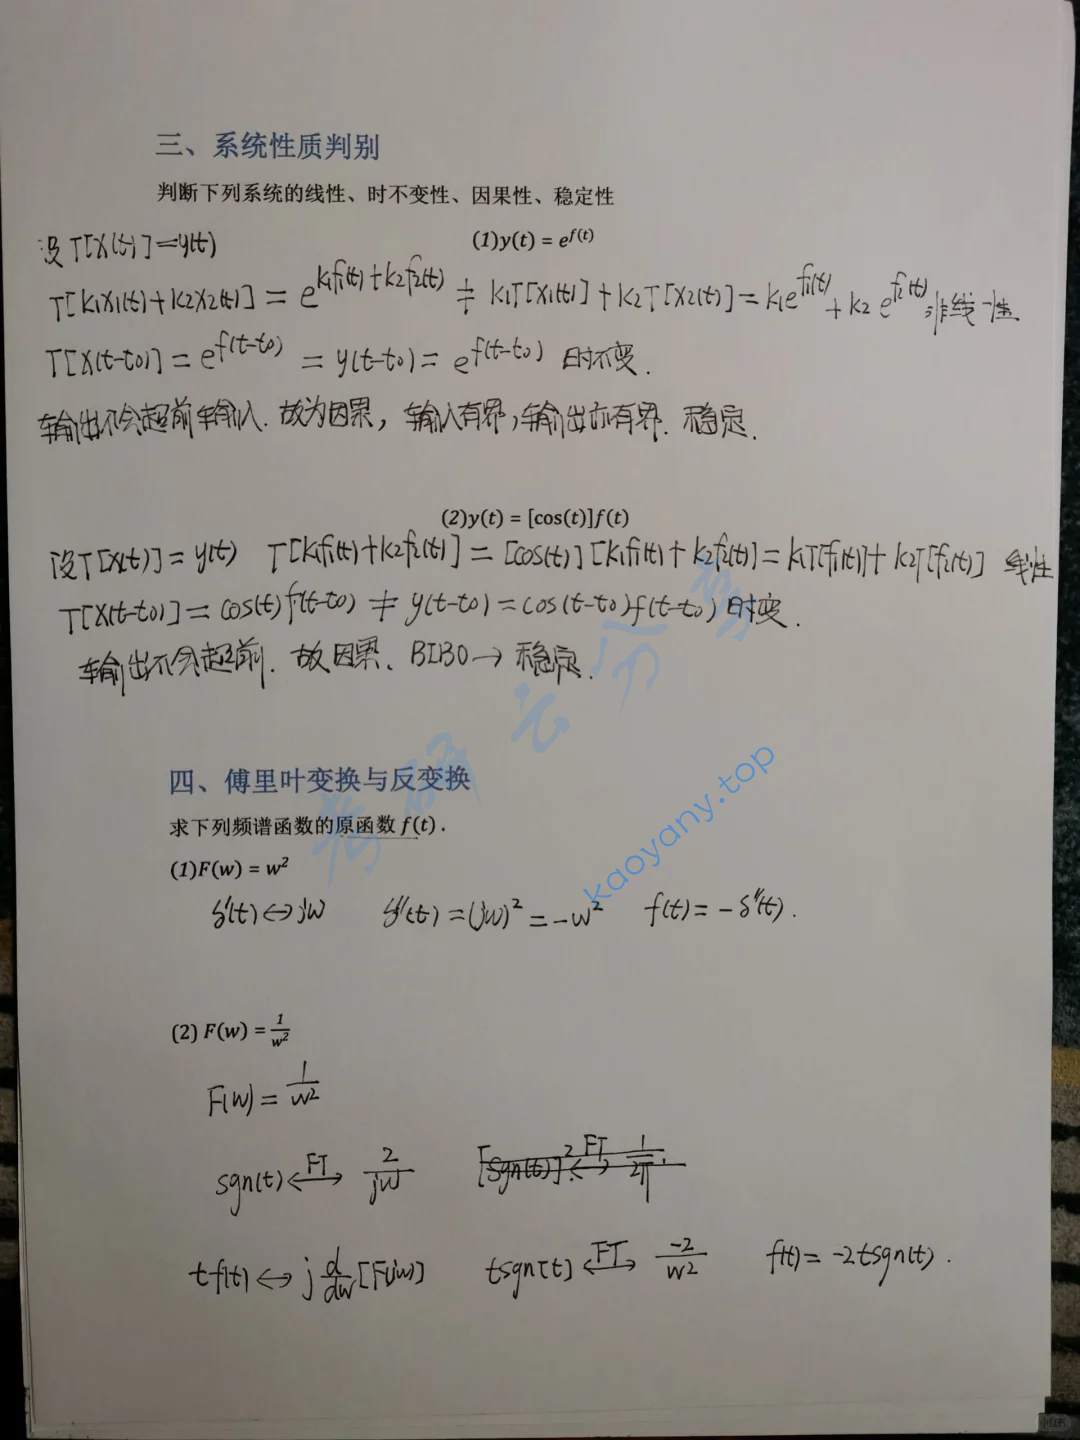 三、系统性质判别
判断下列系统的线性、时不变性、因果性、稳定性
(1)y(t) = e^{f(t)}
设 T[x(t)]=y(t)
T[k1x1(t)+k2x2(t)] = e^{k1f1(t)+k2f2(t)} ≠ k1T[x1(t)]+k2T[x2(t)] = k1e^{f1(t)}+k2 e^{f2(t)},非线性
T[x(t-t0)] = e^{f(t-t0)} = y(t-t0) = e^{f(t-t0)} 时不变.
输出不会超前输入. 故为因果, 输入有界,输出亦有界. 稳定.
(2)y(t) = [cos(t)]f(t)
设T[x(t)] = y(t) T[k1f1(t)+k2f2(t)] = [cos(t)][k1f1(t)+k2f2(t)] = k1T[f1(t)]+k2T[f2(t)] 线性
T[x(t-t0)] = cos(t)f(t-t0) ≠ y(t-t0) = cos(t-t0)f(t-t0) 时变.
输出不会超前. 故因果. BIBO→稳定.
考研云分享
kaoyany.top
四、傅里叶变换与反变换
求下列频谱函数的原函数 f(t).
(1)F(w) = w²
δ'(t)↔jw δ''(t) = (jw)² = -w² f(t) = -δ''(t).
(2) F(w) = 1/w²
F(w) = 1/w²
sgn(t) ←FT→ 2/jw [sgn(t)]² ←FT→ 1/2π.
tf(t)↔j d/dw [F(jw)] tsgn(t) ←FT→ -2/w² f(t) = -2tsgn(t).
小红书